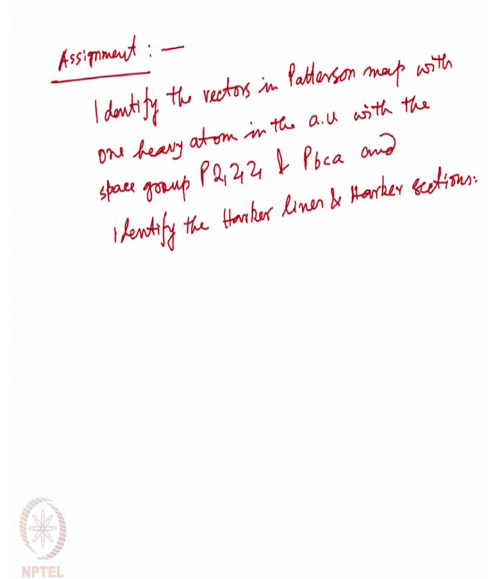 Assignment : —
Identify the vectors in Patterson map with
one heavy atom in the a.u with the
space group P2₁2₁2₁ & Pbca and
identify the Harker lines & Harker sections.
NPTEL